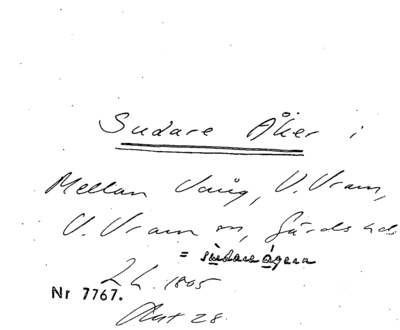 Sudare Åker i
Mellan Vång, V. Vram,
V. Vram sn, Gärds hd
= sùdaɷa ågəra
Lh. 1805
Nr 7767.
Akt 28.